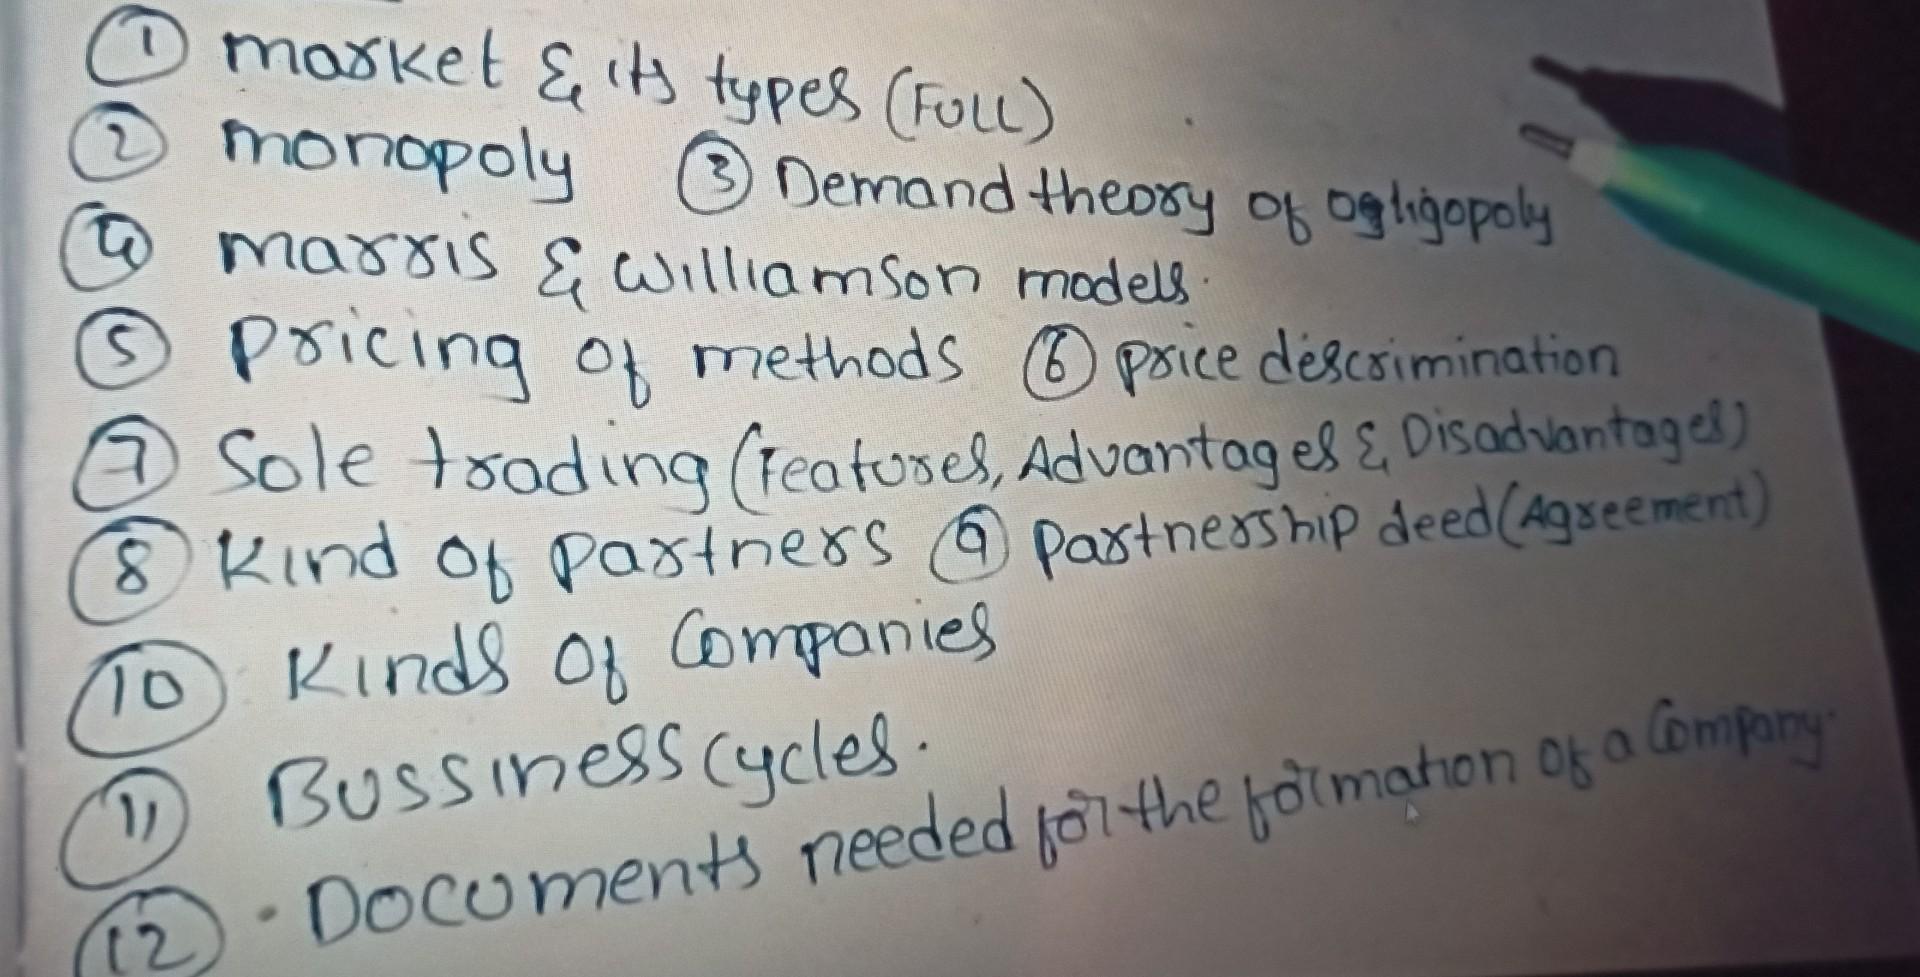 ① market & its types (FULL)
② monopoly ③ Demand theory of ogligopoly
④ marris & Williamson models.
⑤ pricing of methods ⑥ price descrimination
⑦ Sole trading (Features, Advantages & Disadvantages)
⑧ Kind of partners ⑨ partnership deed (Agreement)
⑩ Kinds of Companies
⑪ Bussiness cycles.
⑫ Documents needed for the formation of a Company.